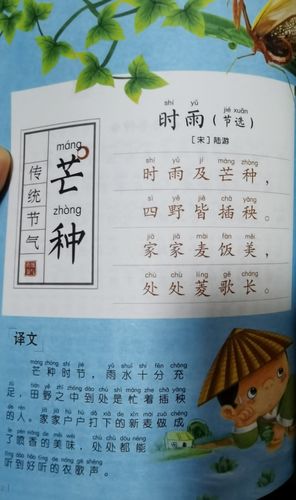 shí yǔ jié xuǎn
时雨(节选)
[宋]陆游
máng
芒
zhòng
种
传统节气
shí yǔ jí máng zhòng
时雨及芒种,
sì yě jiē chā yāng
四野皆插秧。
jiā jiā mài fàn měi
家家麦饭美,
chù chù líng gē cháng
处处菱歌长。
译文
máng zhòng shí jié yǔ shuǐ shí fēn chōng
芒种时节,雨水十分充
zú tián yě zhī zhōng dào chù shì máng zhe chā yāng
足,田野之中到处是忙着插秧
de rén jiā jiā hù hù dǎ xià de xīn mài zuò chéng
的人。家家户户打下的新麦做成
le pēn xiāng de měi wèi chù chù dōu néng
了喷香的美味,处处都能
tīng dào hǎo tīng de nóng gē shēng
听到好听的农歌声。